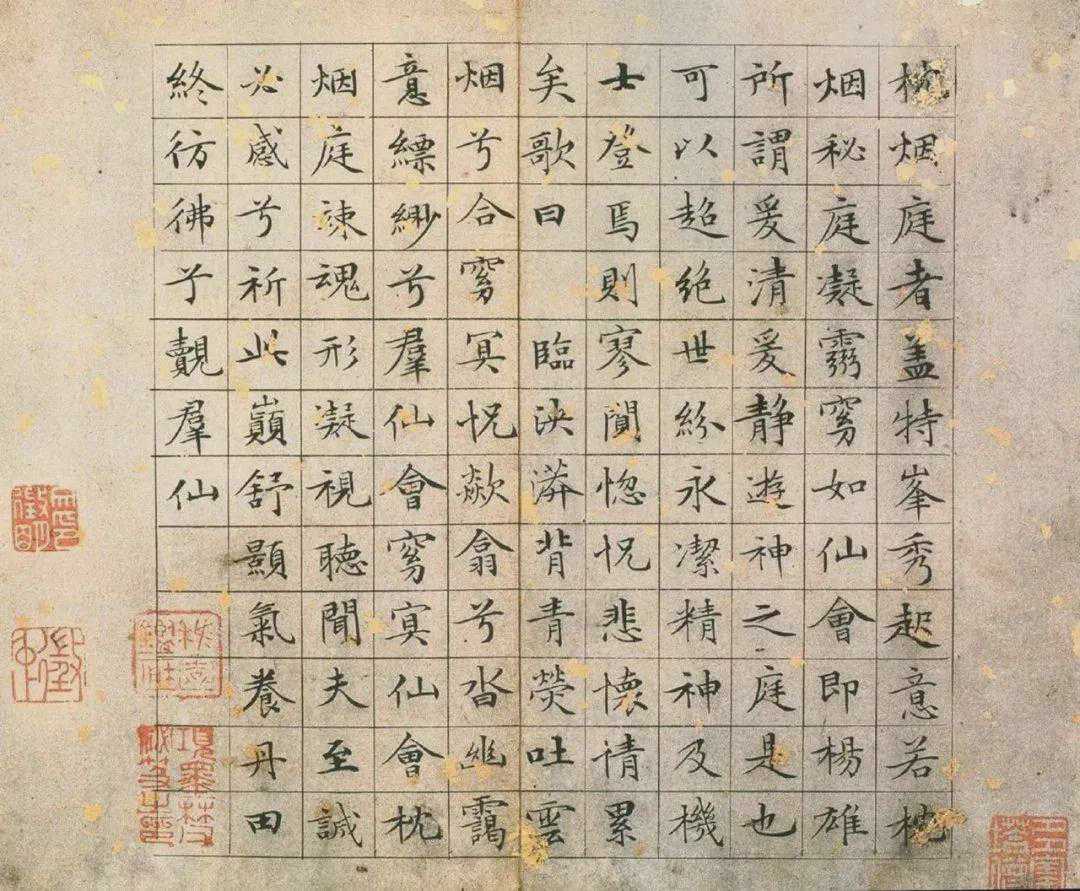 枕烟庭者盖特峯秀起意若枕
烟秘庭凝靈窈如仙會即楊雄
所謂爰清爰静遊神之庭是也
可以超絶世紛永潔精神及機
士登焉則寥闃惚怳悲懷情累
矣歌曰 臨泱漭背青熒吐雲
烟兮合窈冥怳欻翕兮沓幽靄
意縹緲兮羣仙會窈冥仙會枕
烟庭竦魂形凝視聽聞夫至誠
必感兮祈此巔舒顥氣養丹田
終彷彿兮覿羣仙